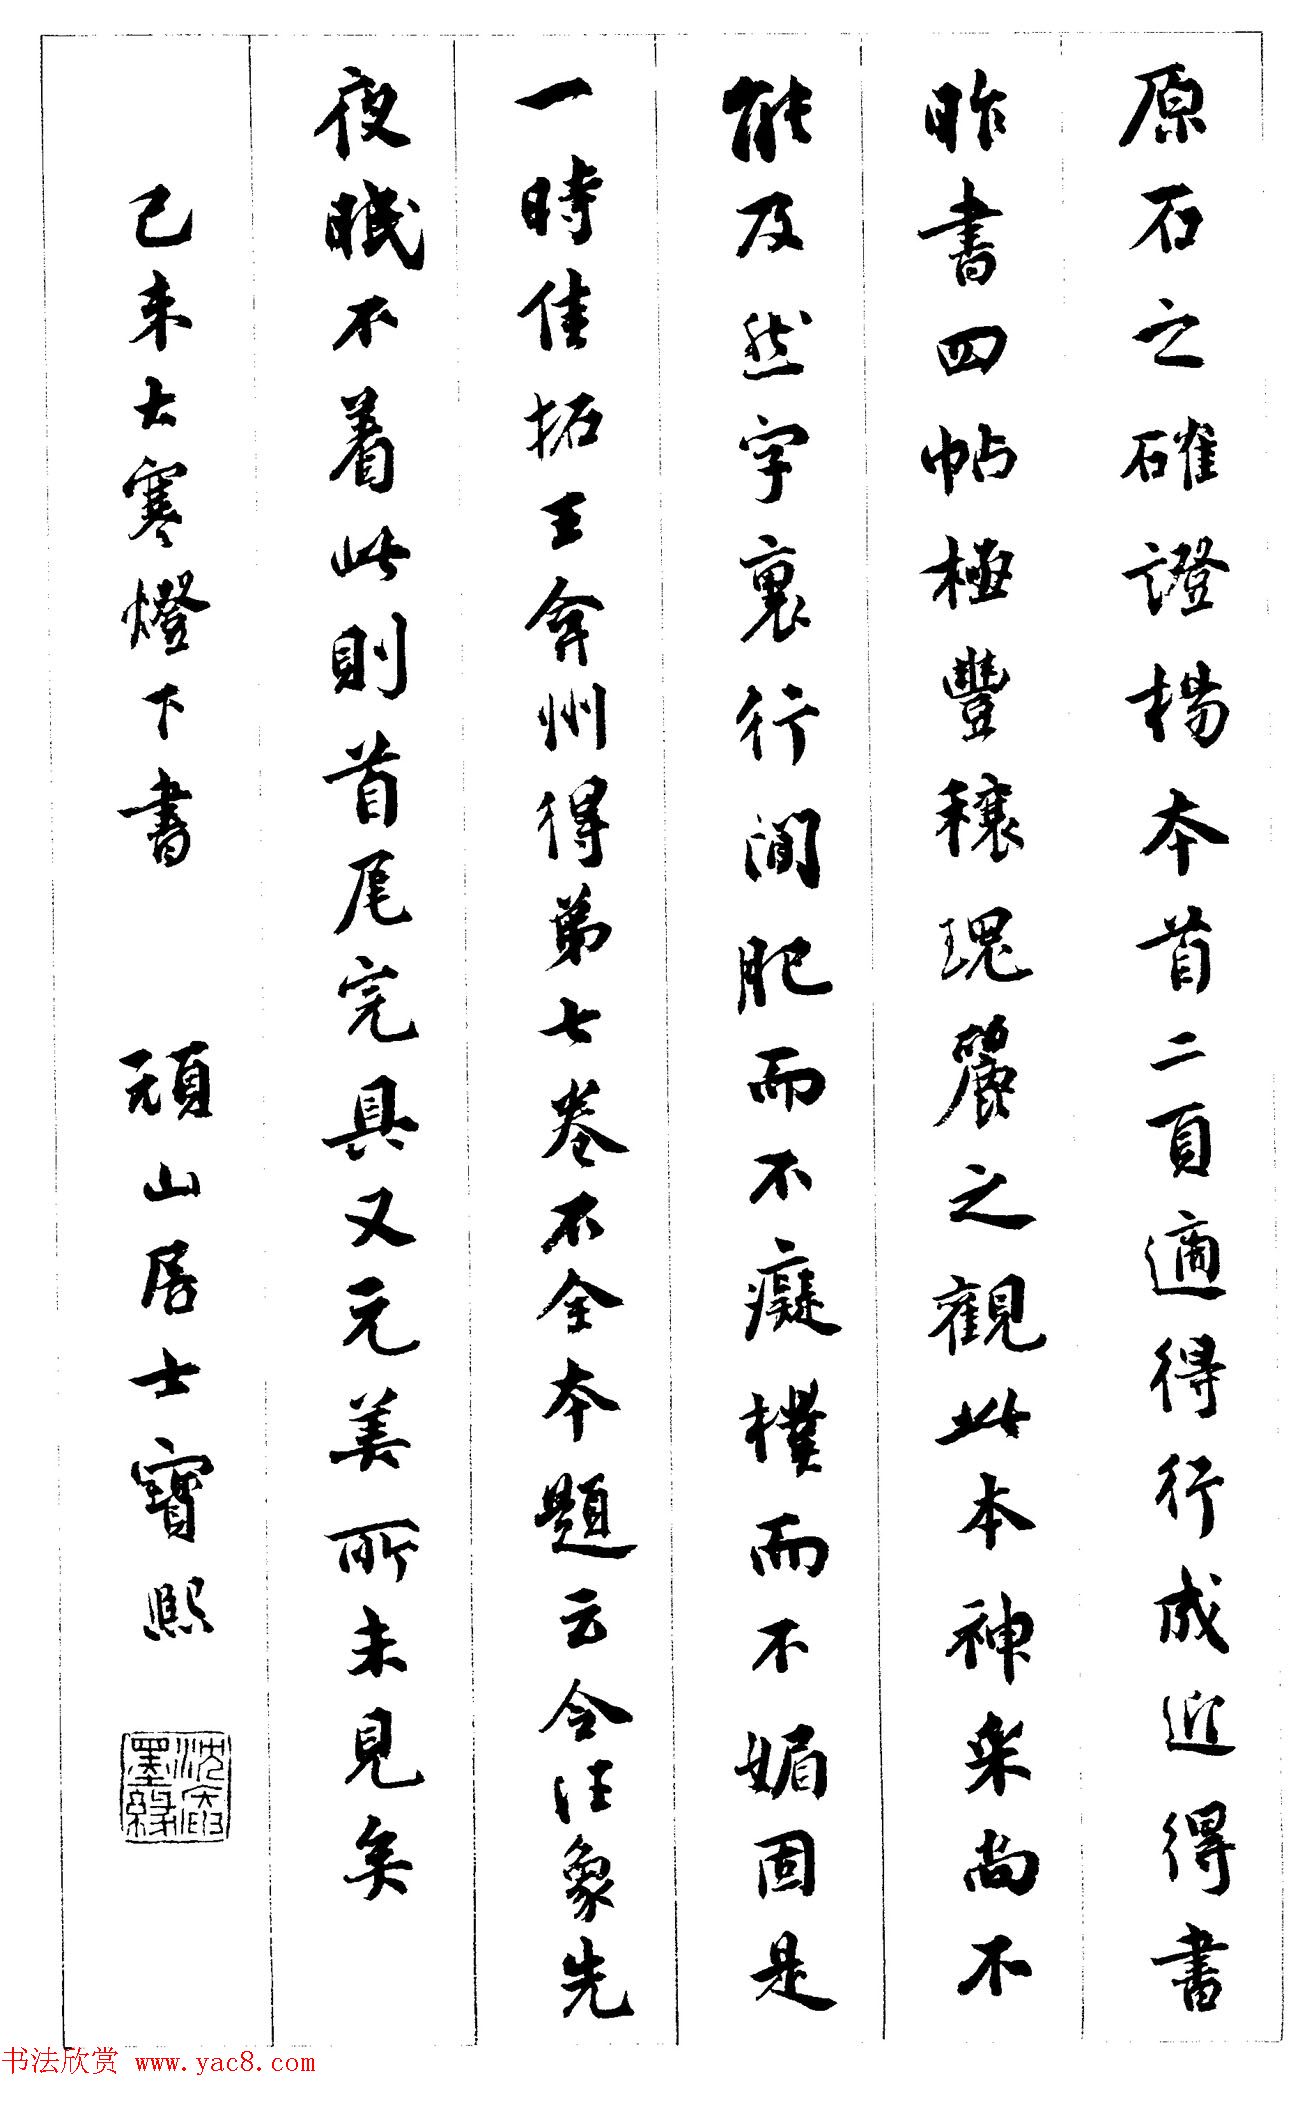 原石之確證楊本首二頁適得行成近得書
昨書四帖極豐穰瑰麗之觀此本神采尚不
能及然字裏行間肥而不癡樸而不媚固是
一時佳拓王弇州得第七卷不全本題云令汪象先
夜眠不着此則首尾完具又元美所未見矣
己未大寒燈下書 頑山居士寶熙
沈盦墨緣
书法欣赏 www.yac8.com